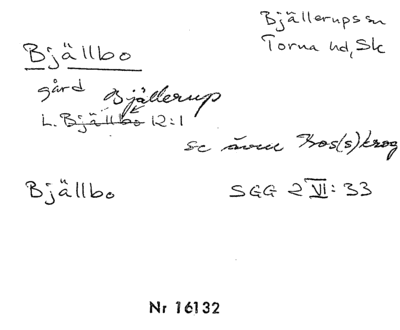 Bjällerupssn
Torna hd, Sk
Bjällbo
gård Bjällerup
L. Bjällbo 12:1
se även Kos(s)krog
Bjällbo SGG 2 VI: 33
Nr 16132